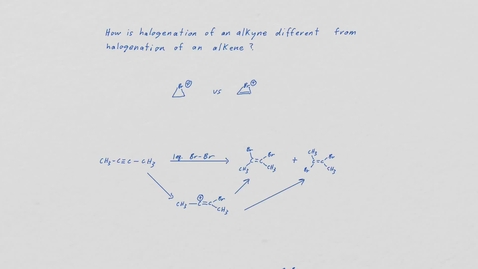 How is halogenation of an alkyne different from
halogenation of an alkene?
Br ⊕ vs Br ⊕
CH₃-C≡C-CH₃ 1eq. Br-Br Br Br CH₃ C=C CH₃ + CH₃ Br C=C Br CH₃
CH₃-C⊕=C Br CH₃